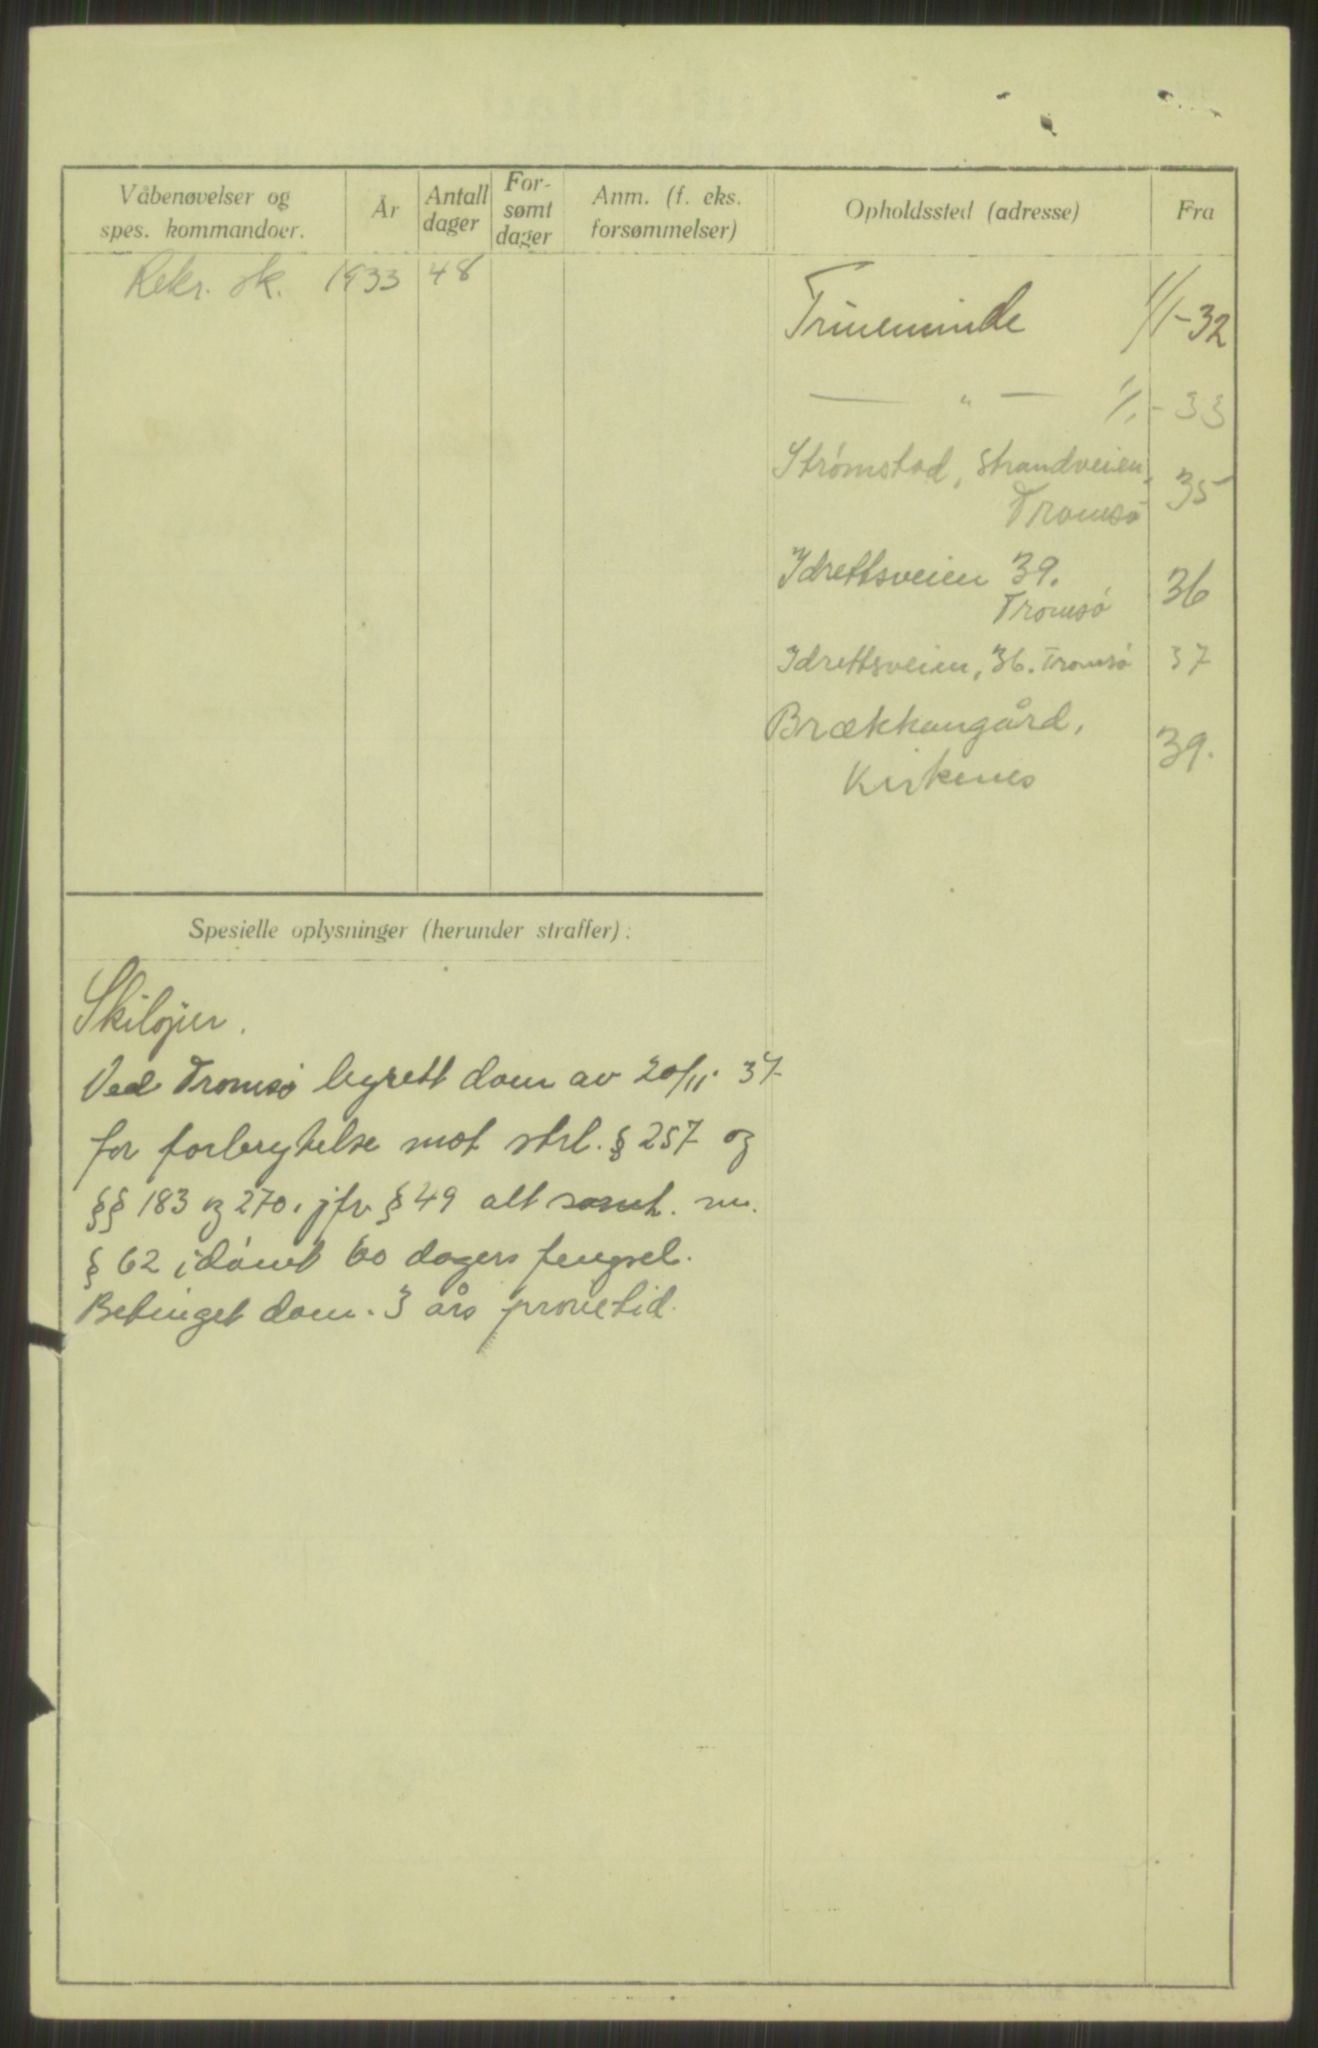 Våbenøvelser og
spes. kommandoer.
År
Antall
dager
For-
sømt
dager
Anm. (f. eks.
forsømmelser)
Opholdssted (adresse)
Fra
Rekr. sk. 1933 48
Trineminde 1/1-32
— " — 1/1-33
Strømstad, Strandveien,
Tromsø 35
Idrettsveien 39.
Tromsø 36
Idrettsveien, 36. Tromsø 37
Brækkangård,
Kirkenes 39.
Spesielle oplysninger (herunder straffer):
Skiløper.
Ved Tromsø byrett dom av 20/11. 37
for forbrytelse mot strl. § 257 og
§§ 183 og 270. jfr § 49 alt samt.
§ 62 idømt 60 dagers fengsel.
Betinget dom. 3 års prøvetid.